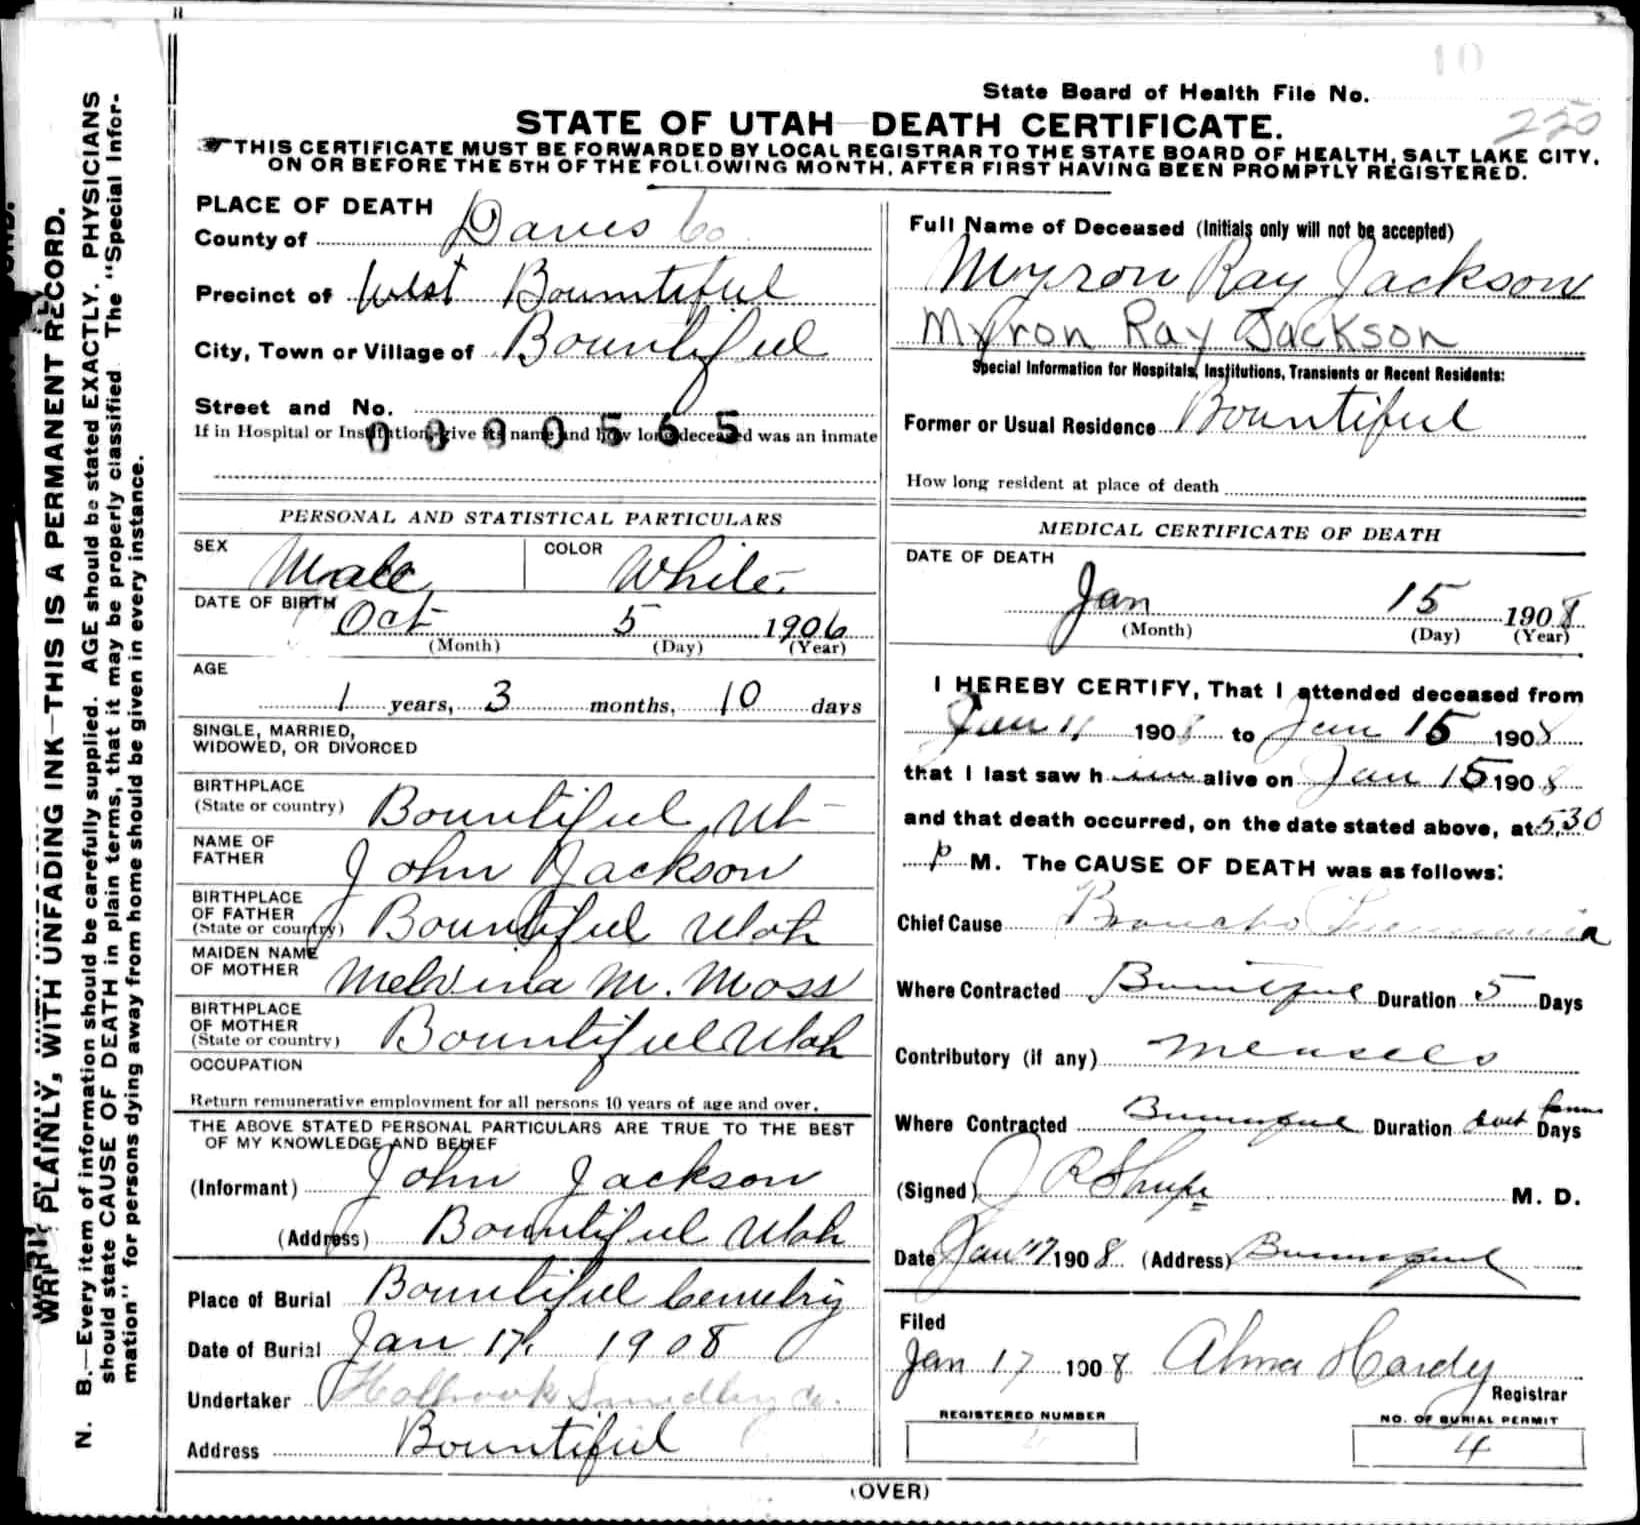 State Board of Health File No.
220
STATE OF UTAH—DEATH CERTIFICATE.
THIS CERTIFICATE MUST BE FORWARDED BY LOCAL REGISTRAR TO THE STATE BOARD OF HEALTH, SALT LAKE CITY,
ON OR BEFORE THE 5TH OF THE FOLLOWING MONTH, AFTER FIRST HAVING BEEN PROMPTLY REGISTERED.
WRITE PLAINLY, WITH UNFADING INK—THIS IS A PERMANENT RECORD.
N. B.—Every item of information should be carefully supplied. AGE should be stated EXACTLY. PHYSICIANS
should state CAUSE OF DEATH in plain terms, that it may be properly classified. The "Special Infor-
mation" for persons dying away from home should be given in every instance.
PLACE OF DEATH
County of Davis Co
Precinct of West Bountiful
City, Town or Village of Bountiful
Street and No.
If in Hospital or Institution, give its name and how long deceased was an inmate
0000565
PERSONAL AND STATISTICAL PARTICULARS
SEX Male COLOR White
DATE OF BIRTH Oct 5 1906
(Month) (Day) (Year)
AGE
1 years, 3 months, 10 days
SINGLE, MARRIED,
WIDOWED, OR DIVORCED
BIRTHPLACE
(State or country) Bountiful Ut
NAME OF
FATHER John Jackson
BIRTHPLACE
OF FATHER
(State or country) Bountiful Utah
MAIDEN NAME
OF MOTHER Melvina M. Moss
BIRTHPLACE
OF MOTHER
(State or country) Bountiful Utah
OCCUPATION
Return remunerative employment for all persons 10 years of age and over.
THE ABOVE STATED PERSONAL PARTICULARS ARE TRUE TO THE BEST
OF MY KNOWLEDGE AND BELIEF
(Informant) John Jackson
(Address) Bountiful Utah
Place of Burial Bountiful Cemetry
Date of Burial Jan 17, 1908
Undertaker Holbrook Smedley Co.
Address Bountiful
Full Name of Deceased (Initials only will not be accepted)
Myron Ray Jackson
Myron Ray Jackson
Special Information for Hospitals, Institutions, Transients or Recent Residents:
Former or Usual Residence Bountiful
How long resident at place of death
MEDICAL CERTIFICATE OF DEATH
DATE OF DEATH
Jan 15 1908
(Month) (Day) (Year)
I HEREBY CERTIFY, That I attended deceased from
Jan 11 1908 to Jan 15 1908
that I last saw him alive on Jan 15 1908
and that death occurred, on the date stated above, at 5.30
P M. The CAUSE OF DEATH was as follows:
Chief Cause Broncho Pneumonia
Where Contracted Bountiful Duration 5 Days
Contributory (if any) Measels
Where Contracted Bountiful Duration Days
(Signed) J R Shupe M. D.
Date Jan 17 1908 (Address) Bountiful
Filed
Jan 17 1908 Alma Hardy
Registrar
REGISTERED NUMBER
NO. OF BURIAL PERMIT
4
(OVER)